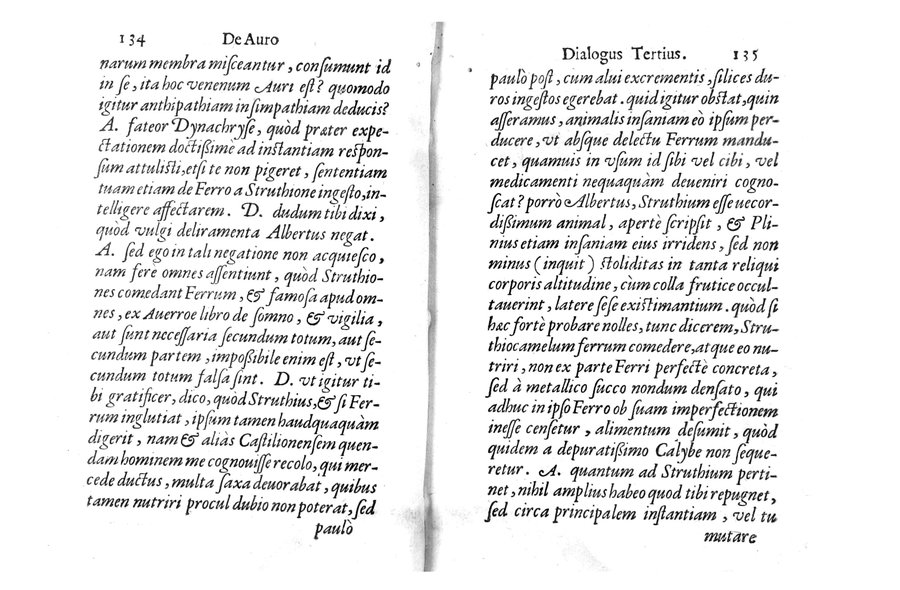 134 De Auro
narum membra misceantur, consumunt id
in se, ita hoc venenum Auri est? quomodo
igitur anthipathiam in simpathiam deducis?
A. fateor Dynachryse, quòd præter expe-
ctationem doctißime ad instantiam respon-
sum attulisti, etsi te non pigeret, sententiam
tuam etiam de Ferro a Struthione ingesto, in-
telligere affectarem. D. dudum tibi dixi,
quòd vulgi deliramenta Albertus negat.
A. sed ego in tali negatione non acquiesco,
nam ferè omnes assentiunt, quòd Struthio-
nes comedant Ferrum, & famosa apud om-
nes, ex Auerroe libro de somno, & vigilia,
aut sunt necessaria secundum totum, aut se-
cundum partem, impoßibile enim est, vt se-
cundum totum falsa sint. D. vt igitur ti-
bi gratificer, dico, quòd Struthius, & si Fer-
rum inglutiat, ipsum tamen haudquaquàm
digerit, nam & aliàs Castilionensem quen-
dam hominem me cognouisse recolo, qui mer-
cede ductus, multa saxa deuorabat, quibus
tamen nutriri procul dubio non poterat, sed
paulò
Dialogus Tertius. 135
paulò post, cum alui excrementis, silices du-
ros ingestos egerebat. quid igitur obstat, quin
asseramus, animalis insaniam eò ipsum per-
ducere, vt absque delectu Ferrum mandu-
cet, quamuis in vsum id sibi vel cibi, vel
medicamenti nequaquàm deueniri cogno-
scat? porrò Albertus, Struthium esse uecor-
dißimum animal, apertè scripsit, & Pli-
nius etiam insaniam eius irridens, sed non
minus (inquit) stoliditas in tanta reliqui
corporis altitudine, cum colla frutice occul-
tauerint, latere sese existimantium. quòd si
hæc fortè probare nolles, tunc dicerem, Stru-
thiocamelum ferrum comedere, at que eo nu-
triri, non ex parte Ferri perfectè concreta,
sed à metallico succo nondum densato, qui
adhuc in ipso Ferro ob suam imperfectionem
inesse censetur, alimentum desumit, quòd
quidem a depuratißimo Calybe non seque-
retur. A. quantum ad Struthium perti-
net, nihil amplius habeo quod tibi repugnet,
sed circa principalem instantiam, vel tu
mutare